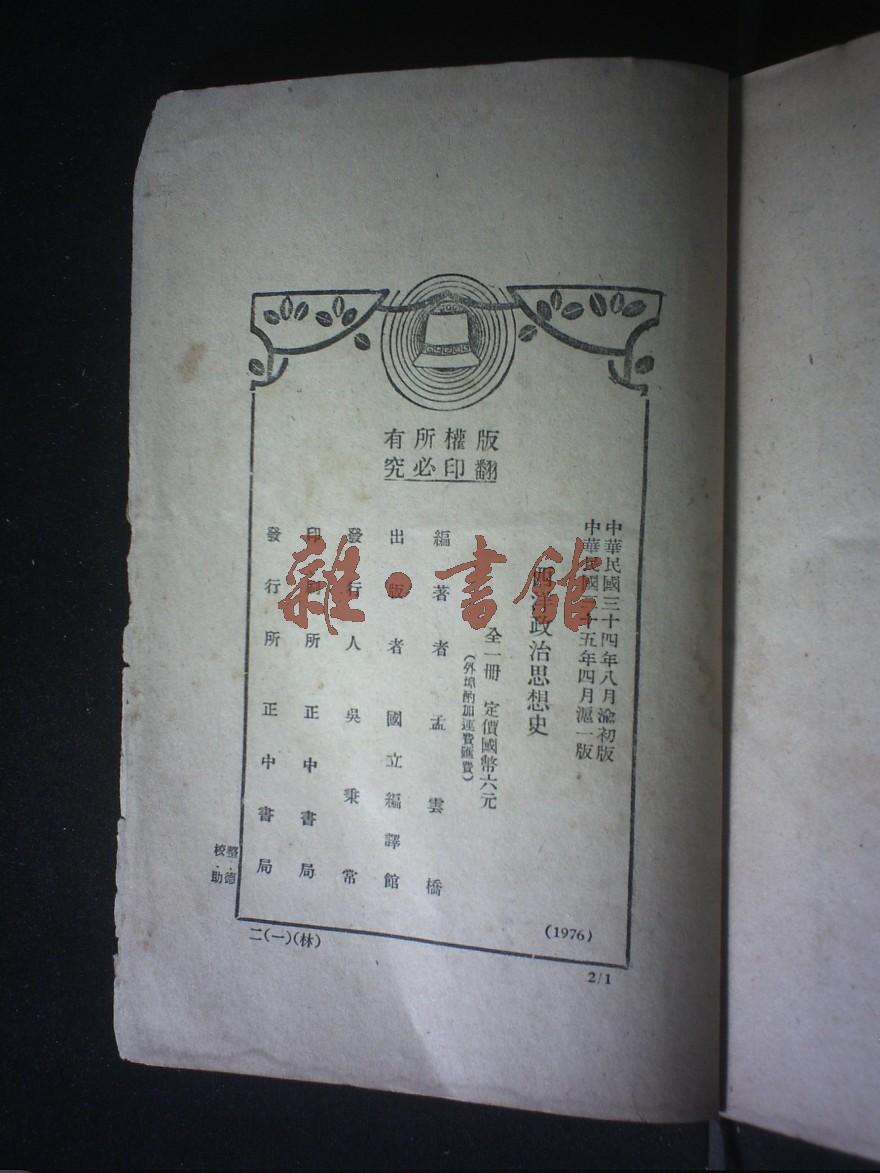 版權所有
翻印必究
中華民國三十四年八月渝初版
中華民國三十五年四月滬一版
西洋政治思想史
全一冊　定價國幣六元
(外埠酌加運費匯費)
編著者　孟雲橋
出版者　國立編譯館
發行人　吳秉常
印刷所　正中書局
發行所　正中書局
(1976)
校
整·德·助
二(一)(林)
2/1
雜·書館